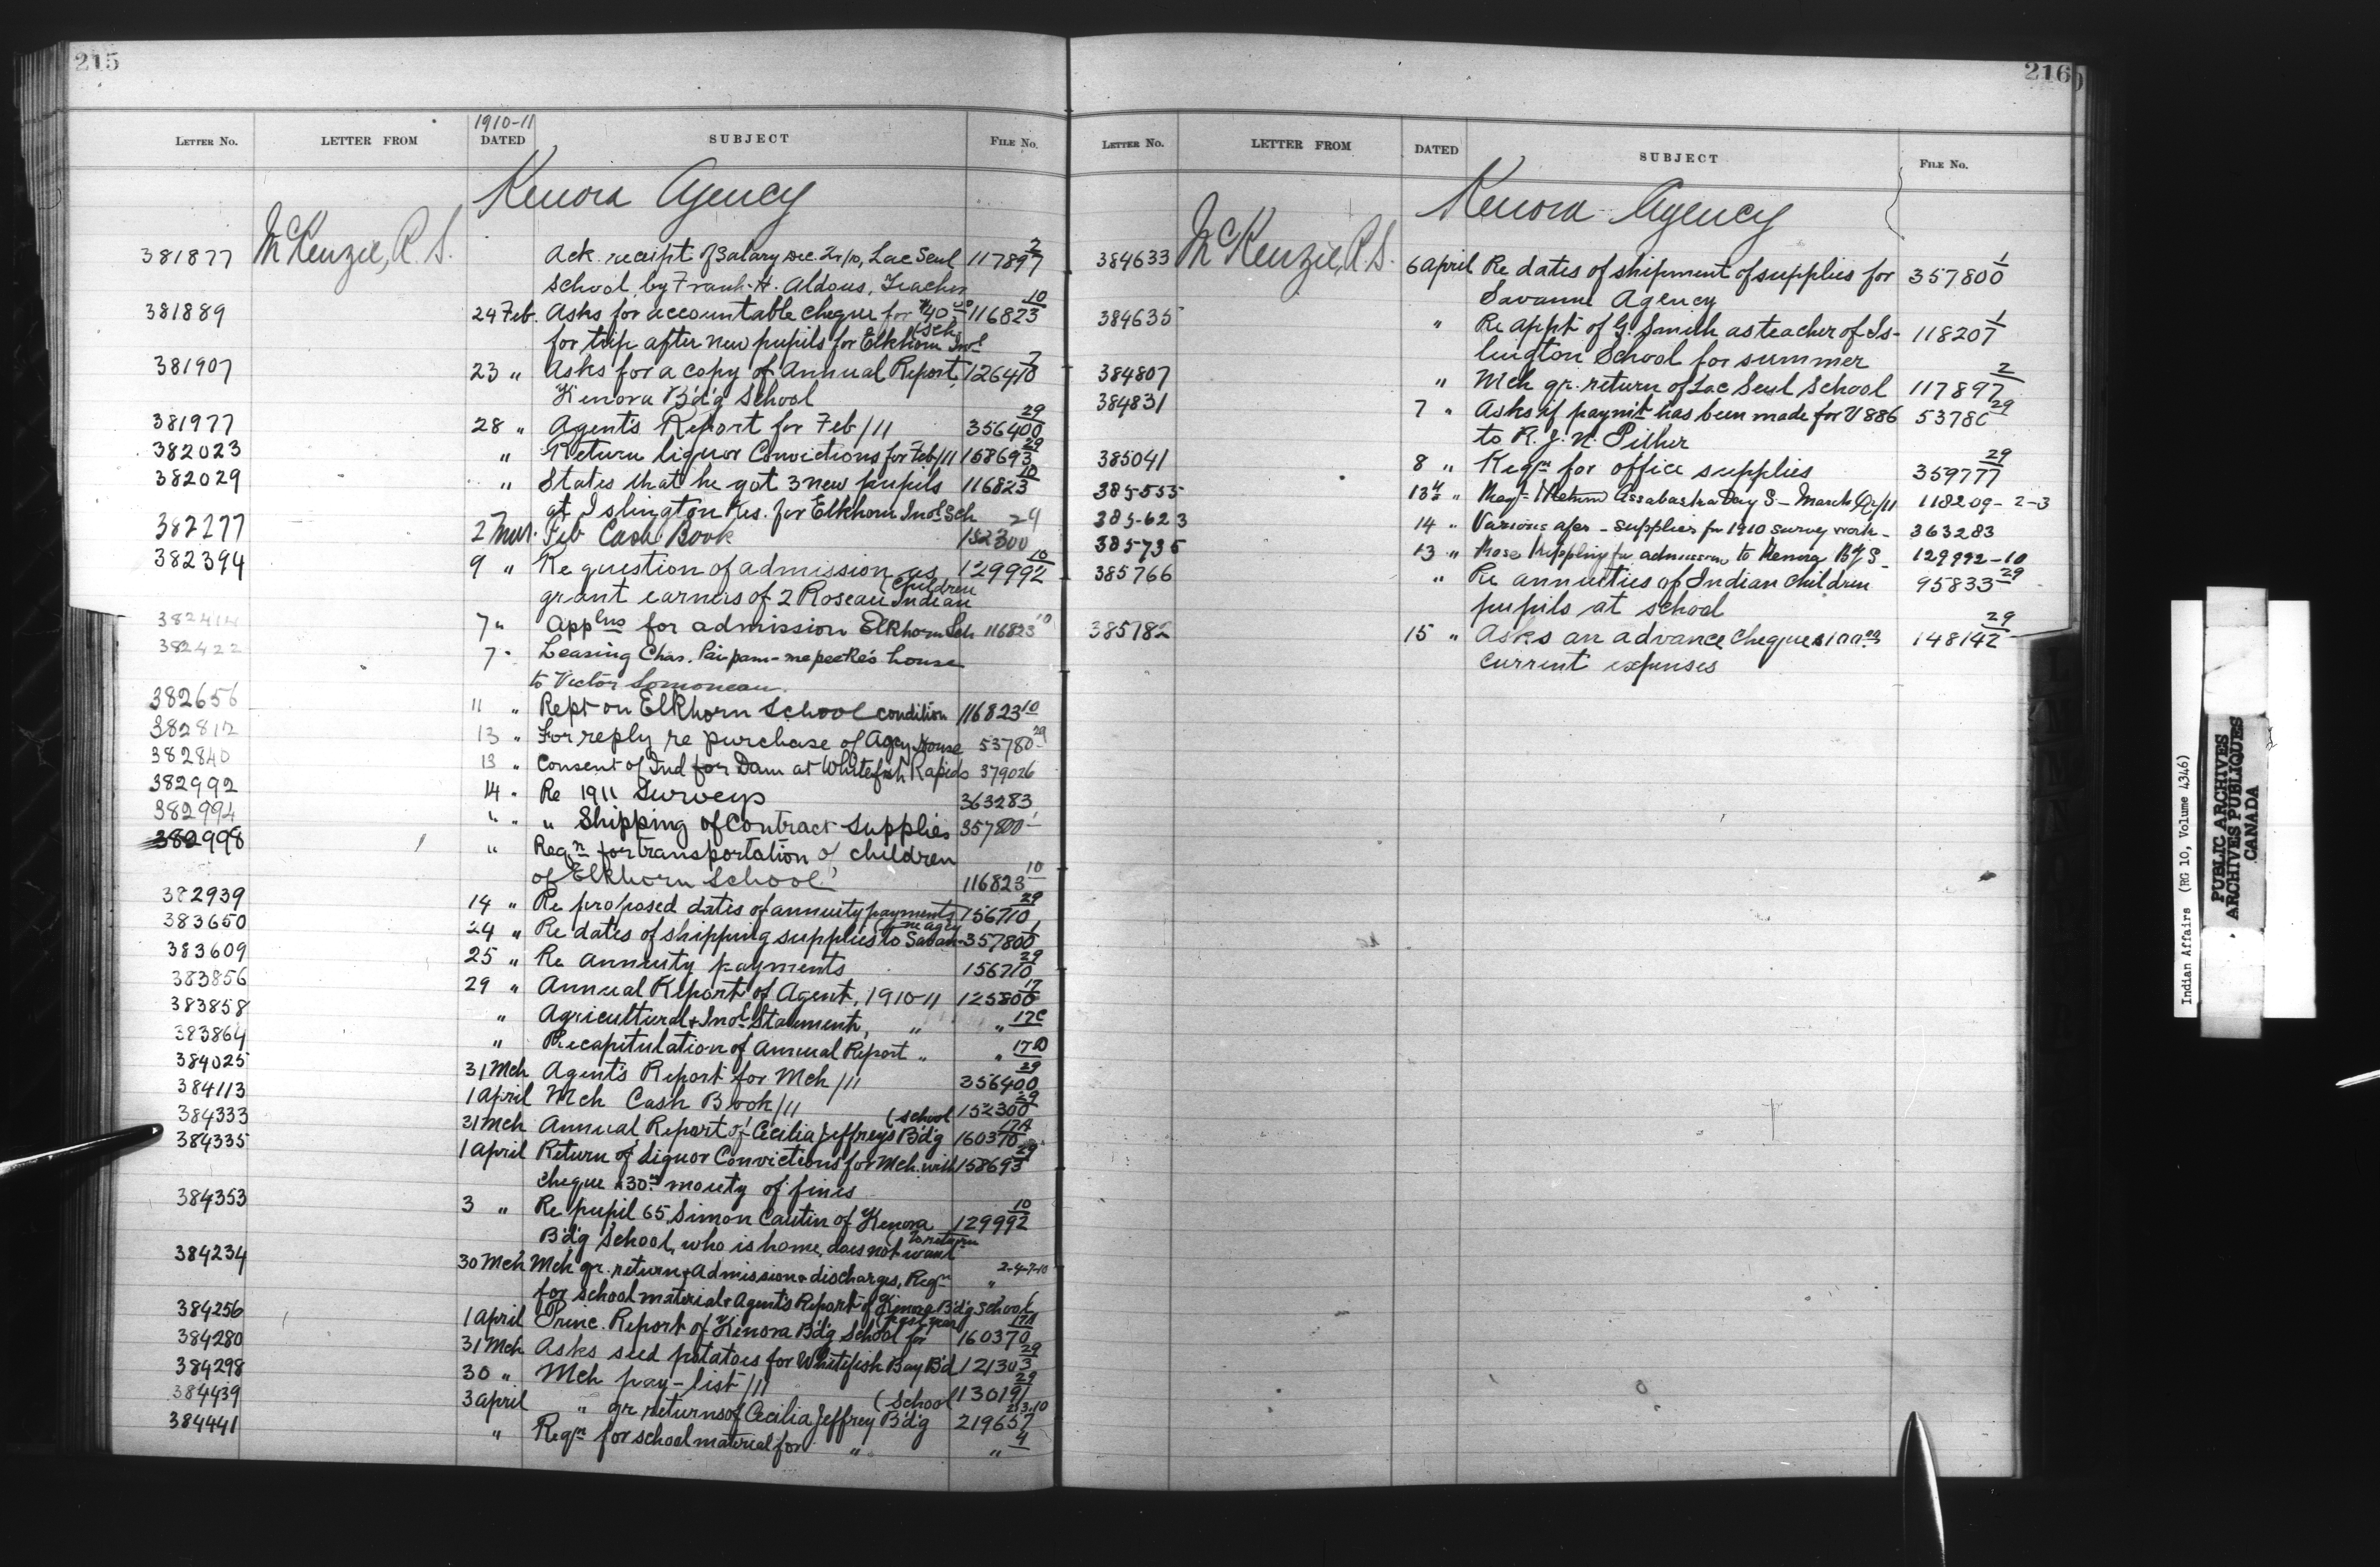 215
1910-11
LETTER NO. LETTER FROM DATED SUBJECT FILE NO.
Kenora Agency
381877 McKenzie, R. S. Ack. receipt of Salary Dec. Qr/10, Lac Seul 117897 2
School, by Frank H. Aldous, Teacher
381889 24 Feb. Asks for accountable cheque for $40 00 116823 10
for trip after new pupils for Elkhorn Indl (Sch.
381907 23 " Asks for a copy of Annual Report, 126410 7
Kenora B'd'g School
381977 28 " Agent's Report for Feb/11 356400 29
382023 " Return liquor Convictions for Feb/11 158693 29
382029 " States that he got 3 new pupils 116823 10
at Islington Res. for Elkhorn Indl Sch
382277 2 Mar. Feb Cash Book 152300 29
382394 9 " Re question of admission as 129992 10
grant earners of 2 Roseau Indian (Children
382414 7 " Applns for admission Elkhorn Sch 116823 10
382422 7 " Leasing Chas. house
to Victor
382656 11 " Rept on Elkhorn School condition 116823 10
382812 13 " For reply re purchase of Agcy House 53780 29
382840 13 " Consent of Ind for Dam at Whitefish Rapids 379026
382992 14 " Re 1911 Surveys 363283
382994 " " " Shipping of Contract Supplies 357800 1
382998 " Reqn for transportation of children
of Elkhorn School 116823 10
382939 14 " Re proposed dates of annuity payments 156710 29
383650 24 " Re dates of shipping supplies to Savan- (ne agcy 357800 1
383609 25 " Re annuity payments 156710 29
383856 29 " Annual Report of Agent, 1910-11 125800 17
383858 " Agricultural & Indl Statement, " " 17C
383864 " Recapitulation of Annual Report " " 17D
384025 31 Mch Agent's Report for Mch/11 356400 29
384113 1 April Mch Cash Book/11 152300 29
384333 31 Mch Annual Report of Cecilia Jeffrey's B'd'g (School 160370 17A
384335 1 April Return of Liquor Convictions for Mch. with 158693 29
cheque $30 00 moiety of fines
384353 3 " Re pupil 65, Simon Cautin of Kenora 129992 10
B'd'g School, who is home, does not want (to return
384234 30 Mch Mch qr. return & Admission & discharges, Reqn " 2-4-7-10
for school material & Agent's Report of Kenora B'd'g School
384256 1 April Princ. Report of Kenora B'd'g School for (past year 160370 17A
384280 31 Mch Asks seed potatoes for Whitefish Bay B'd 121303 29
384298 30 " Mch pay-list/11 130191 29
384439 3 April " qr. returns of Cecilia Jeffrey B'd'g (School 219657 2.3.10
384441 " Reqn for school material for " " 4
216
LETTER NO. LETTER FROM DATED SUBJECT FILE NO.
Kenora Agency
384633 McKenzie, R. S. 6 April Re dates of shipment of supplies for 357800 1
Savanne Agency
384635 " Re appt of G. Smith as teacher of Is- 118207 1
lington School for summer
384807 " Mch qr. return of Lac Seul School 117897 2
384831 7 " Asks if paymt has been made for V 886 53780 29
to R. J. N. Pither
385041 8 " Reqn for office supplies 359777 29
385555 13th " Return Assabaska Day S - March Qr/11 118209-2-3
385623 14 " Various - supplies for 1910 survey work - 363283
385735 13 " for admission to Kenora B'g S. 129992-10
385766 " Re annuities of Indian children 95833 29
pupils at school
385782 15 " Asks an advance cheque $100 00 148142 29
current expenses
Indian Affairs (RG 10, Volume 4346)
PUBLIC ARCHIVES
ARCHIVES PUBLIQUES
CANADA